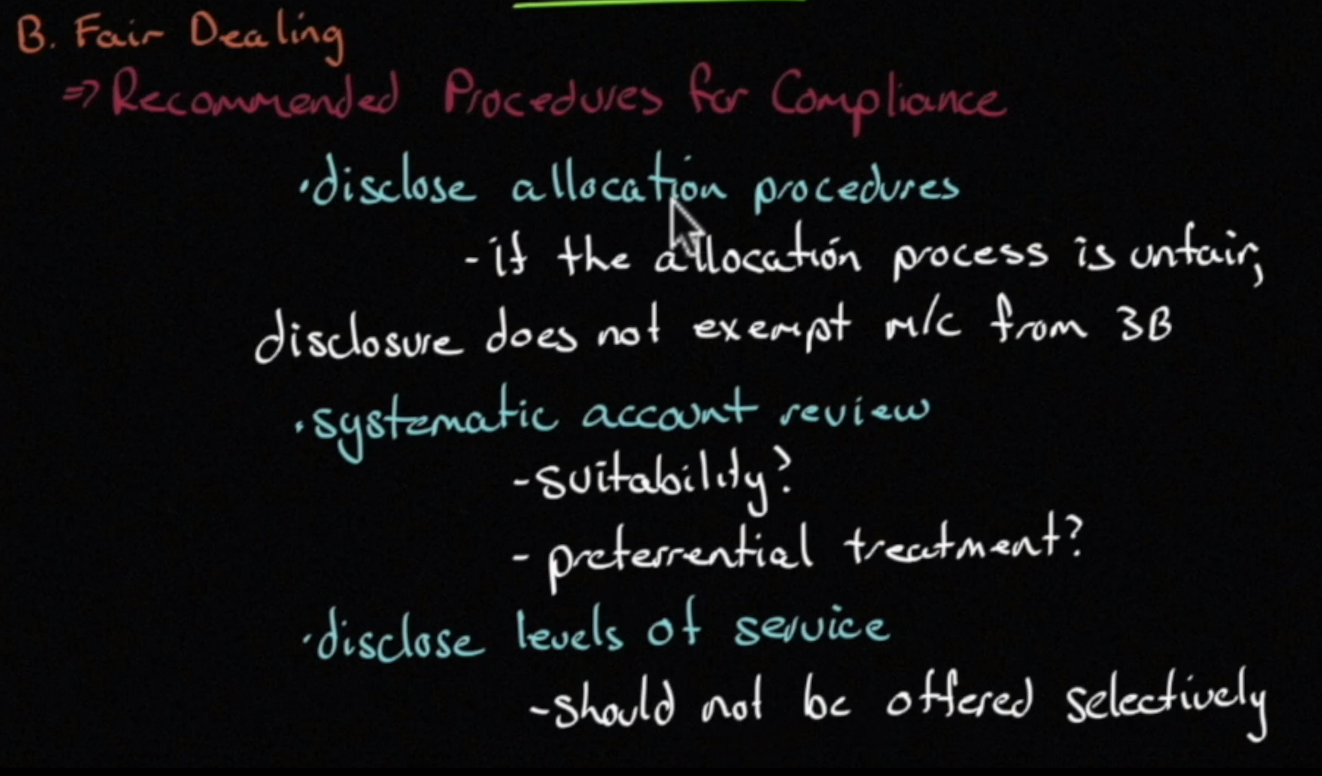 B. Fair Dealing
⇒ Recommended Procedures for Compliance
·disclose allocation procedures
-if the allocation process is unfair,
disclosure does not exempt M/C from 3B
·systematic account review
-suitability?
- preferrential treatment?
·disclose levels of service
-should not be offered selectively